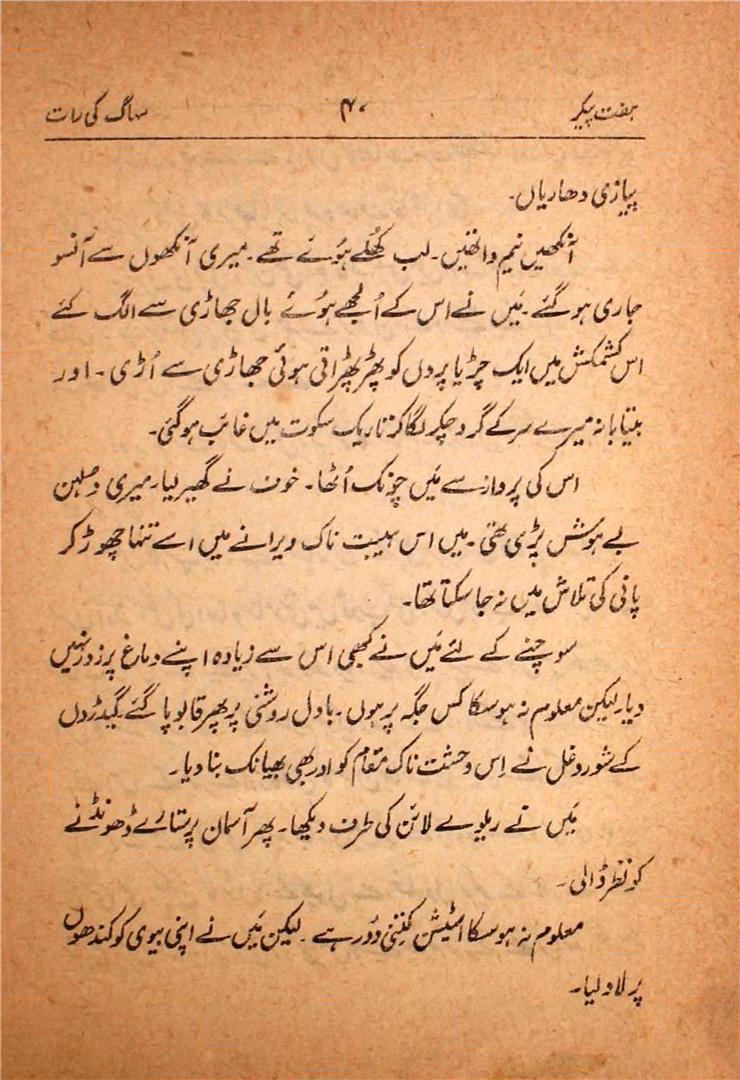 ہفت پیکر ۴۰ سہاگ کی رات
پیازی دھاریاں۔
آنکھیں نیم وا تھیں۔ لب کھُلے ہوئے تھے۔ میری آنکھوں سے آنسو
جاری ہو گئے۔ مَیں نے اس کے اُلجھے ہوئے بال جھاڑی سے الگ کئے
اس کشمکش میں ایک چڑیا پروں کو پھڑپھڑاتی ہوئی جھاڑی سے اُڑی۔ اور
بیتابانہ میرے سر کے گرد چکر لگا کر تاریک سکوت میں غائب ہو گئی۔
اس کی پرواز سے مَیں چونک اُٹھا۔ خوف نے گھیر لیا۔ میری دلہن
بے ہوش پڑی تھی۔ میں اس ہیبت ناک ویرانے میں اسے تنہا چھوڑ کر
پانی کی تلاش میں نہ جا سکتا تھا۔
سوچنے کے لئے مَیں نے کبھی اس سے زیادہ اپنے دماغ پر زور نہیں
دیا۔ لیکن معلوم نہ ہو سکا کس جگہ پر ہوں۔ بادل روشنی پر پھر قابو پا گئے۔ گیدڑوں
کے شور و غل نے اِس وحشت ناک مقام کو اور بھی بھیانک بنا دیا۔
مَیں نے ریلوے لائن کی طرف دیکھا۔ پھر آسمان پر ستارے ڈھونڈنے
کو نظر ڈالی۔
معلوم نہ ہو سکا اسٹیشن کتنی دُور ہے۔ لیکن مَیں نے اپنی بیوی کو کندھوں
پر لاد لیا۔